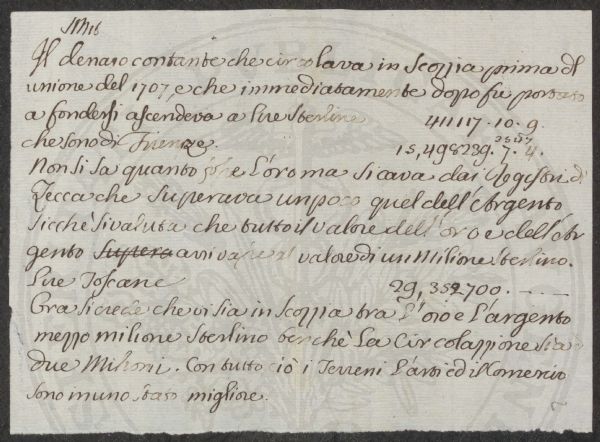 Il denaro contante che circolava in Scozzia prima dl
unione del 1707 e che immediatamente dopo fu portato
a fondersi ascendeva a lire sterline 41117 . 10 . 9
che sono di Firenze. 15,498239. 7. 4.
Non si sa quanto fosse l'oro ma si cava dai Regestri di
Zecca che superava un poco quel dell'Argento
sicchè si valuta che tutto il valore dell'oro e dell'Ar
gento Supera arrivasse al valore di un Milione Sterlino.
Lire Toscane 29,352700. - - -
Ora si crede che vi sia in Scozzia tra l'oro e l'argento
mezzo milione Sterlino benchè la Circolazzione sia
due Milioni. Con tutto ciò i Terreni l'arti ed il Comercio
sono in uno stato migliore.